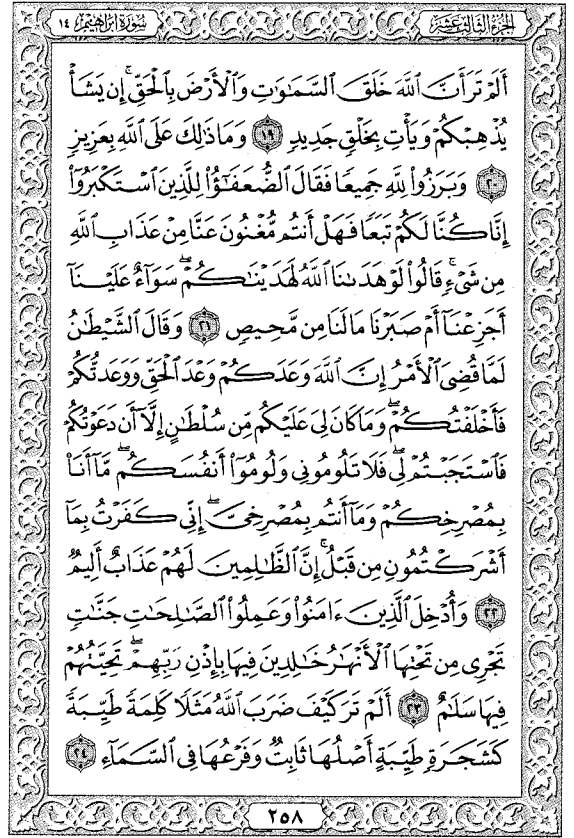 سورة إبراهيم ١٤
الجزء الثالث عشر
أَلَمْ تَرَ أَنَّ ٱللَّهَ خَلَقَ ٱلسَّمَٰوَٰتِ وَٱلْأَرْضَ بِٱلْحَقِّ ۚ إِن يَشَأْ
يُذْهِبْكُمْ وَيَأْتِ بِخَلْقٍ جَدِيدٍ ١٩ وَمَا ذَٰلِكَ عَلَى ٱللَّهِ بِعَزِيزٍ
٢٠ وَبَرَزُوا۟ لِلَّهِ جَمِيعًا فَقَالَ ٱلضُّعَفَٰٓؤُا۟ لِلَّذِينَ ٱسْتَكْبَرُوٓا۟
إِنَّا كُنَّا لَكُمْ تَبَعًا فَهَلْ أَنتُم مُّغْنُونَ عَنَّا مِنْ عَذَابِ ٱللَّهِ
مِن شَىْءٍ ۚ قَالُوا۟ لَوْ هَدَىٰنَا ٱللَّهُ لَهَدَيْنَٰكُمْ ۖ سَوَآءٌ عَلَيْنَآ
أَجَزِعْنَآ أَمْ صَبَرْنَا مَا لَنَا مِن مَّحِيصٍ ٢١ وَقَالَ ٱلشَّيْطَٰنُ
لَمَّا قُضِىَ ٱلْأَمْرُ إِنَّ ٱللَّهَ وَعَدَكُمْ وَعْدَ ٱلْحَقِّ وَوَعَدتُّكُمْ
فَأَخْلَفْتُكُمْ ۖ وَمَا كَانَ لِىَ عَلَيْكُم مِّن سُلْطَٰنٍ إِلَّآ أَن دَعَوْتُكُمْ
فَٱسْتَجَبْتُمْ لِى ۖ فَلَا تَلُومُونِى وَلُومُوٓا۟ أَنفُسَكُم ۖ مَّآ أَنَا۠
بِمُصْرِخِكُمْ وَمَآ أَنتُم بِمُصْرِخِىَّ ۖ إِنِّى كَفَرْتُ بِمَآ
أَشْرَكْتُمُونِ مِن قَبْلُ ۗ إِنَّ ٱلظَّٰلِمِينَ لَهُمْ عَذَابٌ أَلِيمٌ
٢٢ وَأُدْخِلَ ٱلَّذِينَ ءَامَنُوا۟ وَعَمِلُوا۟ ٱلصَّٰلِحَٰتِ جَنَّٰتٍ
تَجْرِى مِن تَحْتِهَا ٱلْأَنْهَٰرُ خَٰلِدِينَ فِيهَا بِإِذْنِ رَبِّهِمْ ۖ تَحِيَّتُهُمْ
فِيهَا سَلَٰمٌ ٢٣ أَلَمْ تَرَ كَيْفَ ضَرَبَ ٱللَّهُ مَثَلًا كَلِمَةً طَيِّبَةً
كَشَجَرَةٍ طَيِّبَةٍ أَصْلُهَا ثَابِتٌ وَفَرْعُهَا فِى ٱلسَّمَآءِ ٢٤
٢٥٨